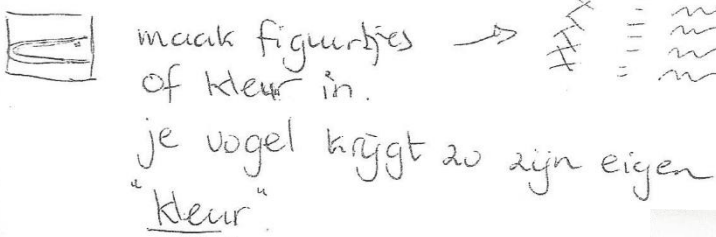 maak figuurtjes →
of kleur in.
je vogel krijgt zo zijn eigen
"kleur".